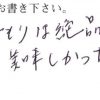 お書き下さい。
もりは絶品
美味しかった